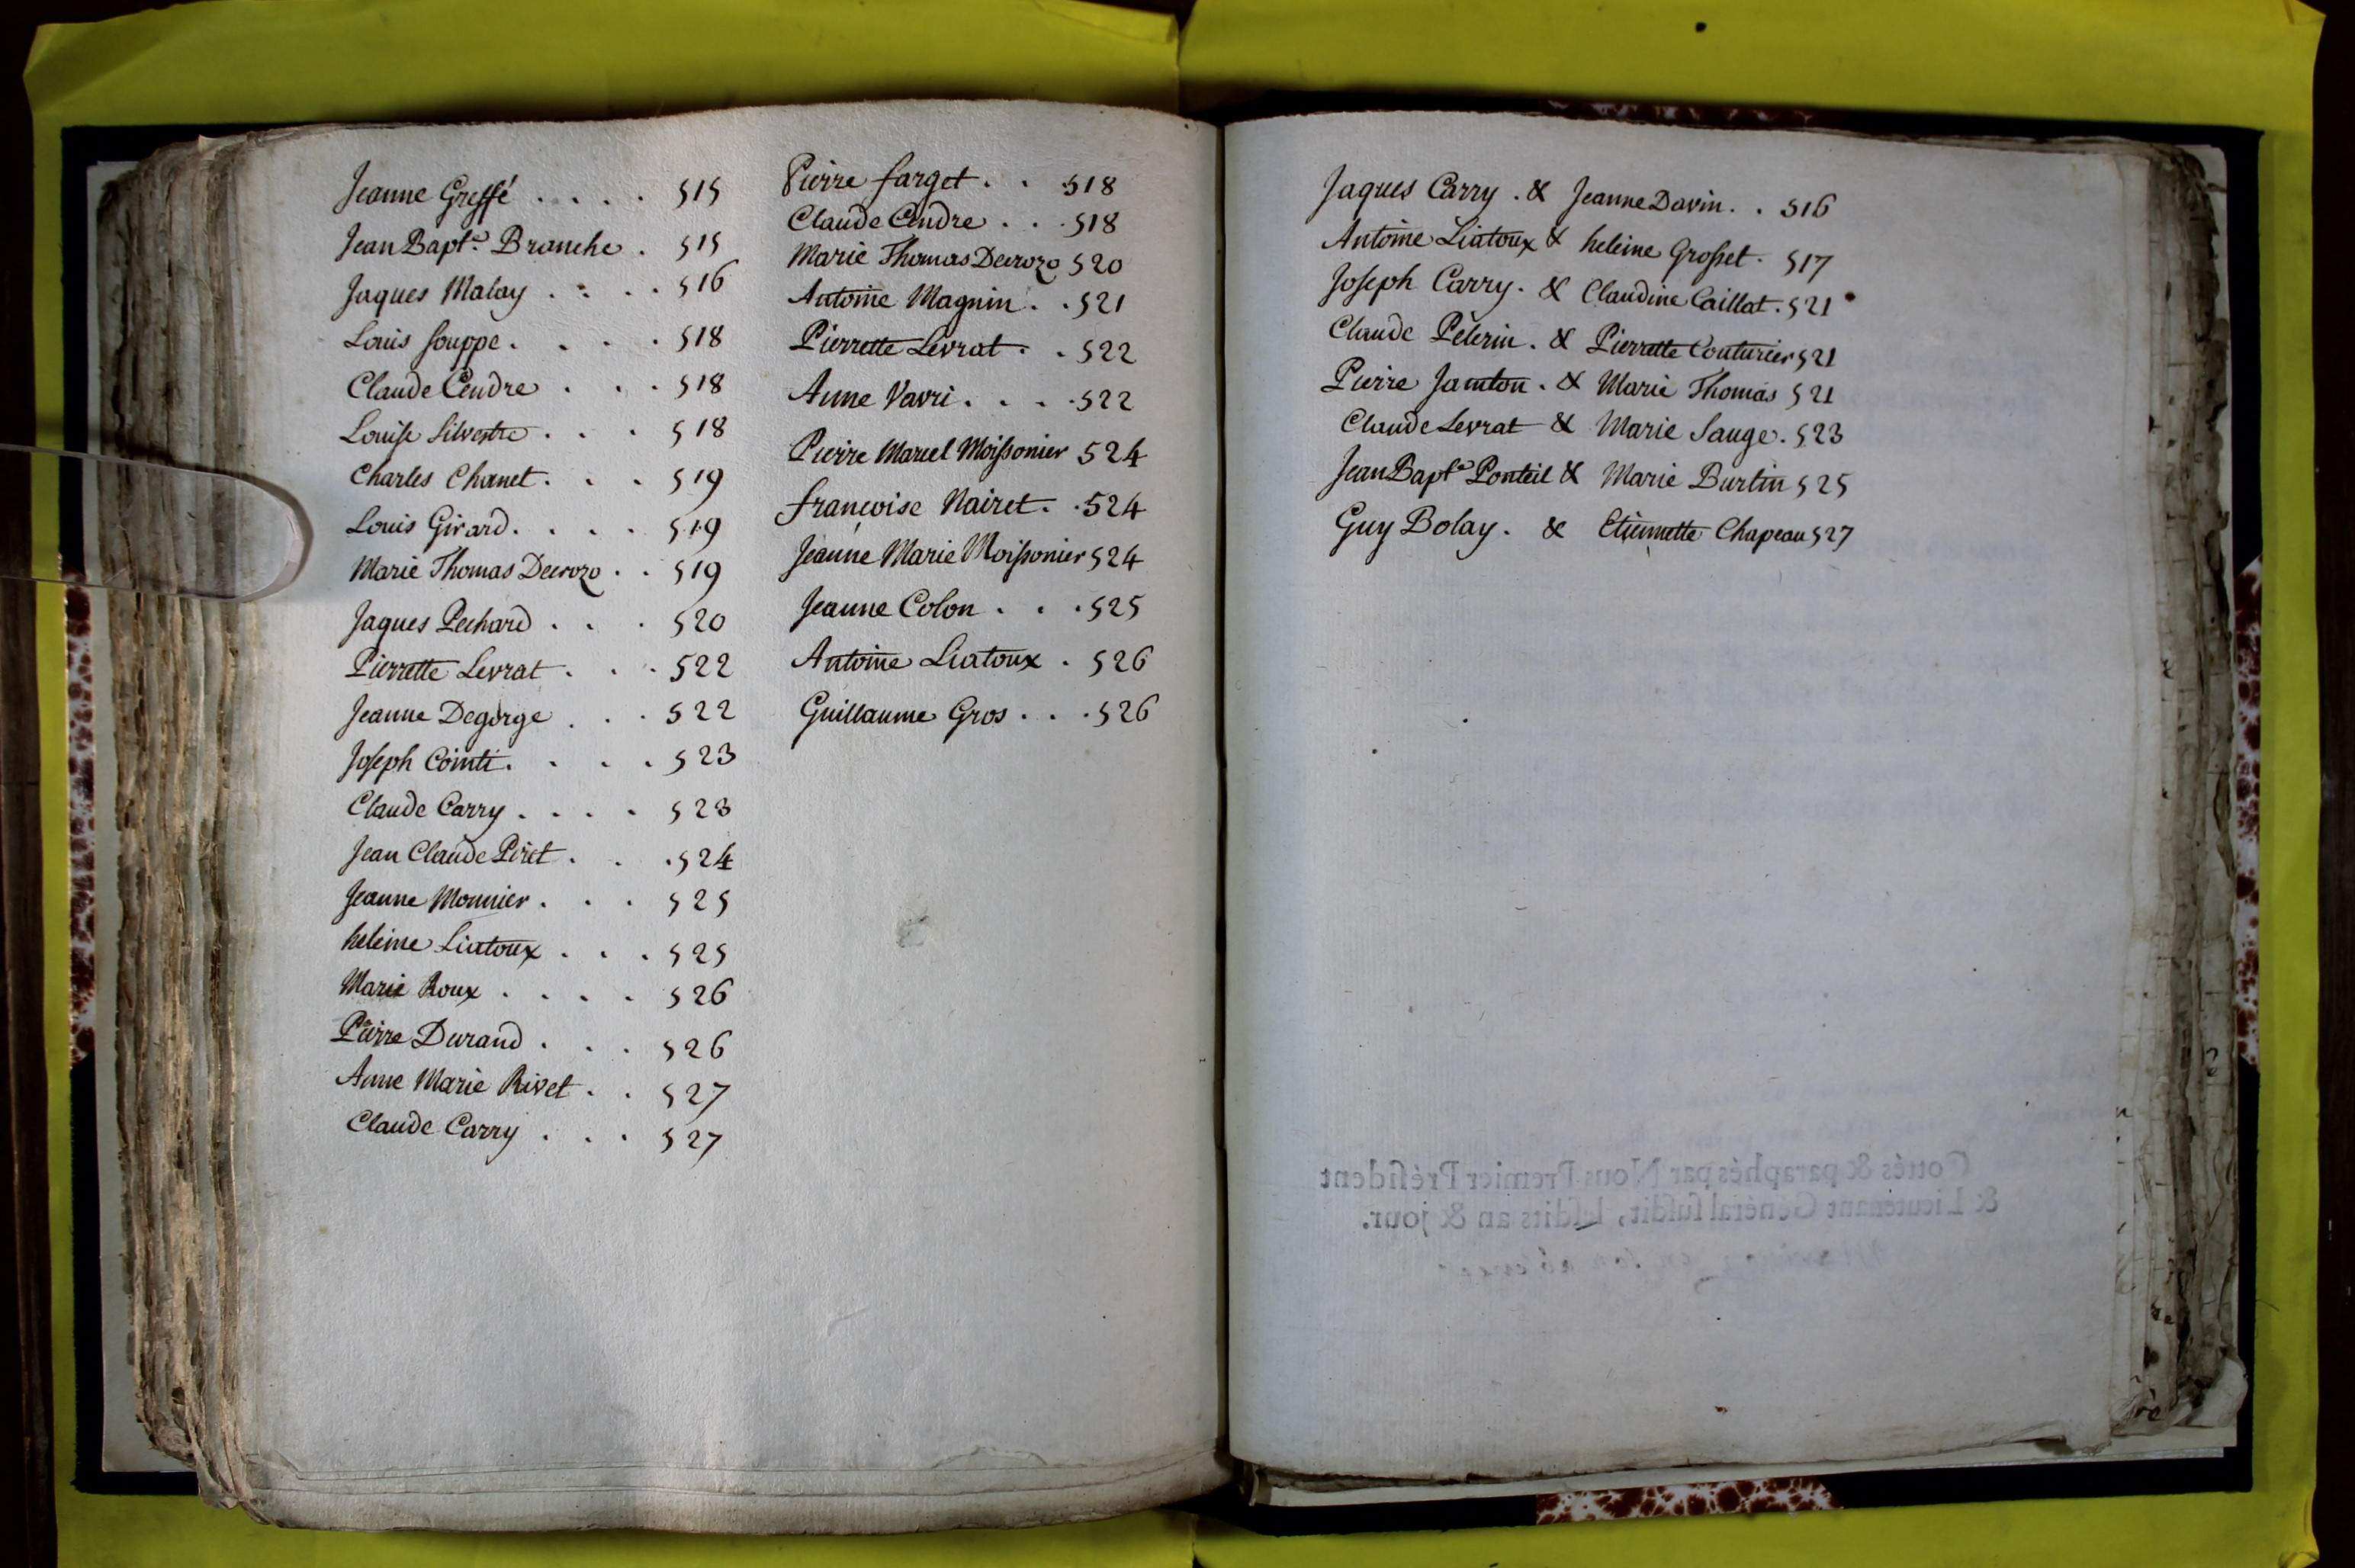 Jeanne Greffé . . . . 515
Jean Bapte. Branche . 515
Jaques Malay . . . . 516
Louis Souppe . . . . 518
Claude Cendre . . . 518
Louise Silvestre . . . 518
Charles Chanet . . . 519
Louis Girard . . . . 519
Marie Thomas Decrozo . . 519
Jaques Pechard . . . 520
Pierrette Levrat . . . 522
Jeanne Degorge . . . 522
Joseph Cointi . . . . 523
Claude Carry . . . . 523
Jean Claude Piret . . . 524
Jeanne Monnier . . . 525
heleine Liatoux . . . 525
Marie Roux . . . . 526
Pierre Durand . . . 526
Anne Marie Rivet . . 527
Claude Carry . . . 527
Pierre farget . . 518
Claude Cendre . . . 518
Marie Thomas Decrozo 520
Antoine Magnin . . 521
Pierrette Levrat . . 522
Anne Vavri . . . . 522
Pierre Marcel Moissonier 524
francoise Nairet . . 524
Jeanne Marie Moissonier 524
Jeanne Colon . . . 525
Antoine Liatoux . 526
Guillaume Gros . . . 526
Jaques Carry . & Jeanne Davin . . 516
Antoine Liatoux & heleine Grosset . 517
Joseph Carry . & Claudine Caillat . 521
Claude Pelerin . & Pierrette Couturier 521
Pierre Janton . & Marie Thomas 521
Claude Levrat & Marie Sauge . 523
Jean Bapte Ponteil & Marie Burtin 525
Guy Bolay . & Etiennette Chapeau 527
Cottés & paraphés par Nous Premier Président
& Lieutenant Général susdit, lesdits an & jour.